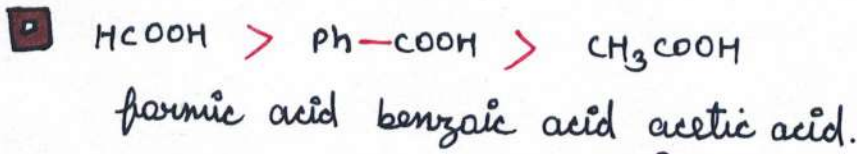 HCOOH > Ph—COOH > CH₃COOH
formic acid benzaic acid acetic acid.